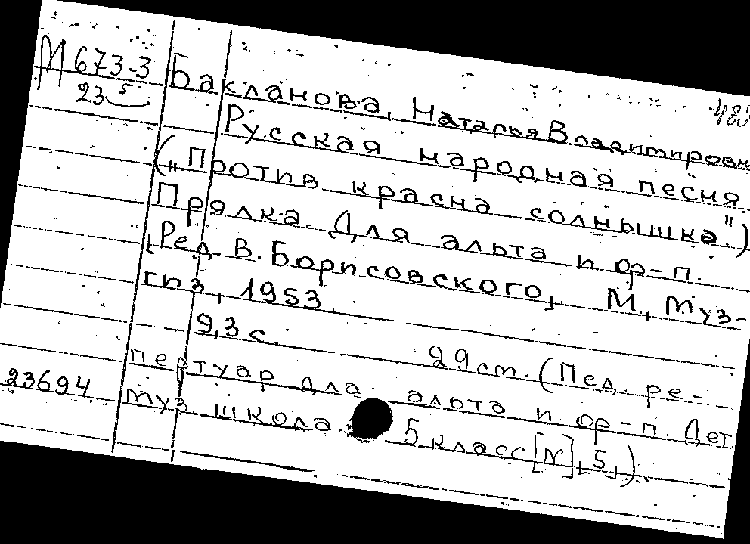 М673-3 Бакланова, Наталья Владимировн
23 5
Русская народная песня
(„Против красна солнышка")
Прялка. Для альта и ф-п.
[Ред. В. Борисовского, М, Муз-
гиз, 1953.
9,3 с. 29 см. (Пед. ре-
пертуар для альта и ф-п. Дет
23694 муз школа 5 класс [N], 5,).